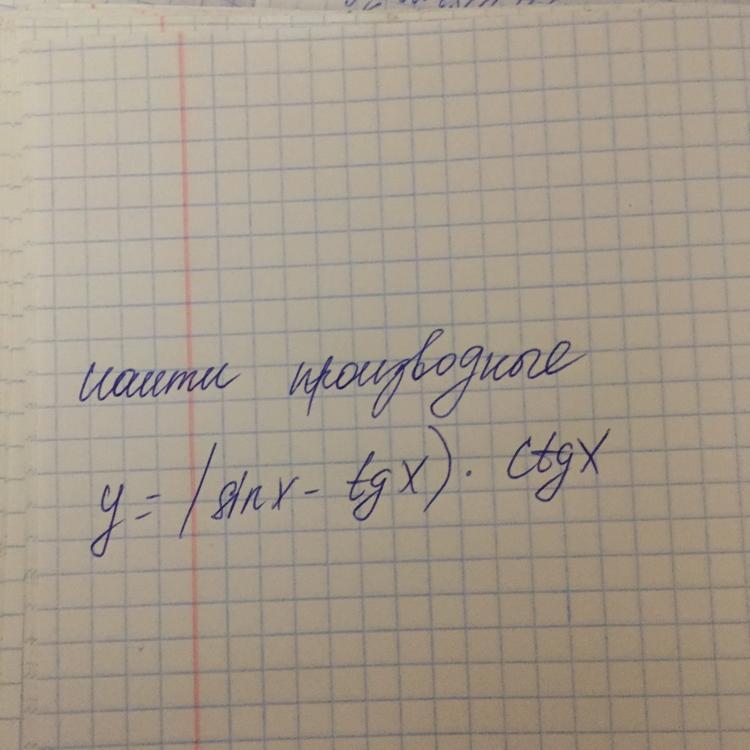 найти производные
y = (sin x - tg x) · ctg x